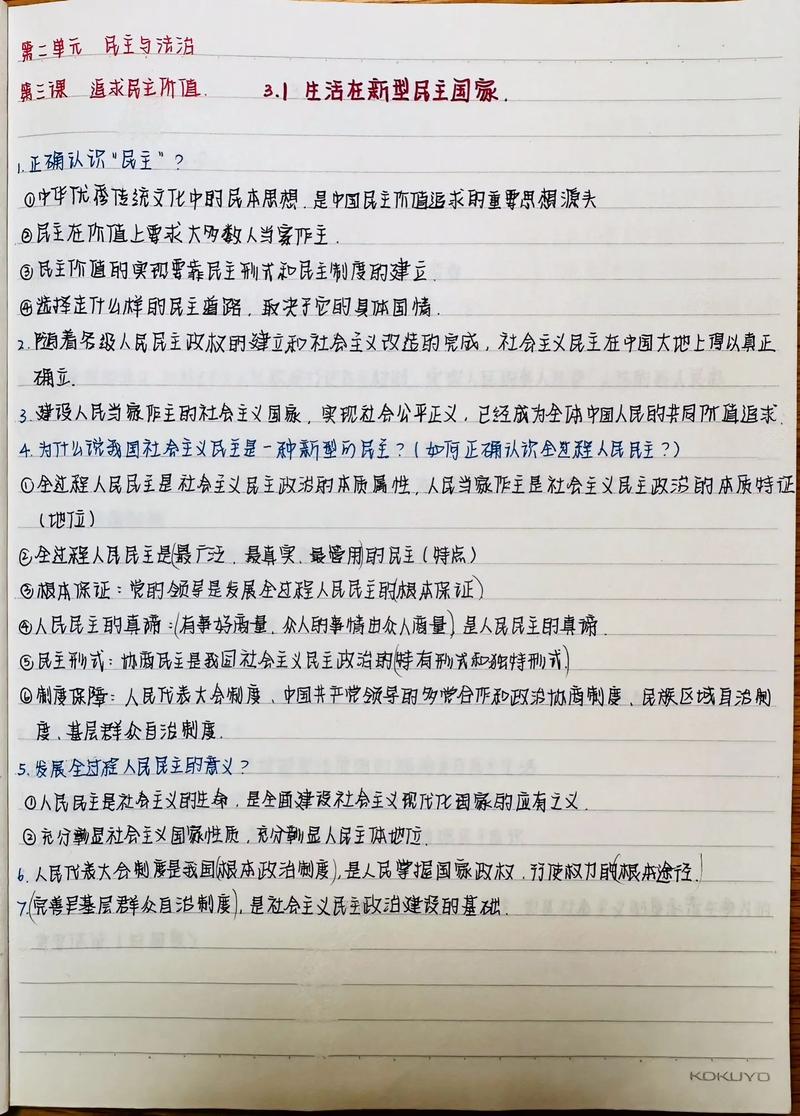 第二单元 民主与法治
第三课 追求民主价值. 3.1 生活在新型民主国家.
1.正确认识"民主"?
①中华优秀传统文化中的民本思想,是中国民主价值追求的重要思想源头
②民主在价值上要求大多数人当家作主.
③民主价值的实现要靠民主形式和民主制度的建立.
④选择走什么样的民主道路,取决于它的具体国情.
2.随着各级人民民主政权的建立和社会主义改造的完成,社会主义民主在中国大地上得以真正
确立.
3.建设人民当家作主的社会主义国家,实现社会公平正义,已经成为全体中国人民的共同价值追求.
4.为什么说我国社会主义民主是一种新型的民主?(如何正确认识全过程人民民主?)
①全过程人民民主是社会主义民主政治的本质属性,人民当家作主是社会主义民主政治的本质特征
(地位)
②全过程人民民主是(最广泛、最真实、最管用)的民主(特点)
③根本保证:党的领导是发展全过程人民民主的(根本保证)
④人民民主的真谛:(有事好商量,众人的事情由众人商量),是人民民主的真谛.
⑤民主形式:协商民主是我国社会主义民主政治的(特有形式和独特形式.)
⑥制度保障:人民代表大会制度、中国共产党领导的多党合作和政治协商制度、民族区域自治制
度、基层群众自治制度.
5.发展全过程人民民主的意义?
①人民民主是社会主义的生命,是全面建设社会主义现代化国家的应有之义.
②充分彰显社会主义国家性质,充分彰显人民主体地位.
6.人民代表大会制度是我国(根本政治制度),是人民掌握国家政权,行使权力的(根本途径.)
7.(完善基层群众自治制度),是社会主义民主政治建设的基础.
KOKUYO